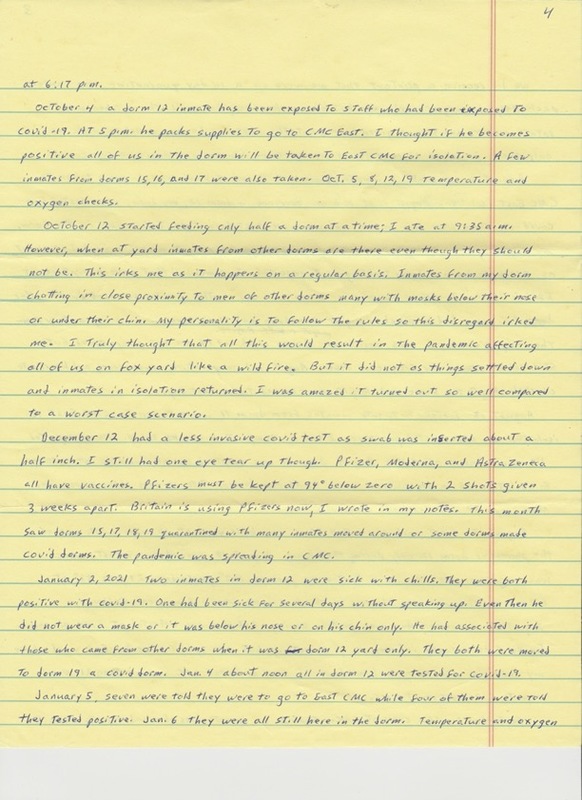 4
at 6:17 p.m.
October 4 a dorm 12 inmate has been exposed to staff who had been exposed to
covid-19. At 5 p.m. he packs supplies to go to CMC East. I thought if he becomes
positive all of us in the dorm will be taken to East CMC for isolation. A few
inmates from dorms 15, 16, and 17 were also taken. Oct. 5, 8, 12, 19 Temperature and
oxygen checks.
October 12 started feeding only half a dorm at a time; I ate at 9:35 a.m.
However, when at yard inmates from other dorms are there even though they should
not be. This irks me as it happens on a regular basis. Inmates from my dorm
chatting in close proximity to men of other dorms many with masks below their nose
or under their chin. My personality is to follow the rules so this disregard irked
me. I truly thought that all this would result in the pandemic affecting
all of us on Fox yard like a wild fire. But it did not as things settled down
and inmates in isolation returned. I was amazed it turned out so well compared
to a worst case scenario.
December 12 had a less invasive covid test as swab was inserted about a
half inch. I still had one eye tear up though. Pfizer, Moderna, and AstraZeneca
all have vaccines. Pfizers must be kept at 94° below zero with 2 shots given
3 weeks apart. Britain is using Pfizers now, I wrote in my notes. This month
saw dorms 15, 17, 18, 19 quarantined with many inmates moved around or some dorms made
covid dorms. The pandemic was spreading in CMC.
January 2, 2021 Two inmates in dorm 12 were sick with chills. They were both
positive with covid-19. One had been sick for several days without speaking up. Even then he
did not wear a mask or it was below his nose or on his chin only. He had associated with
those who came from other dorms when it was dorm 12 yard only. They both were moved
to dorm 19 a covid dorm. Jan. 4 about noon all in dorm 12 were tested for covid-19.
January 5, seven were told they were to go to East CMC while four of them were told
they tested positive. Jan. 6 they were all still here in the dorm. Temperature and oxygen